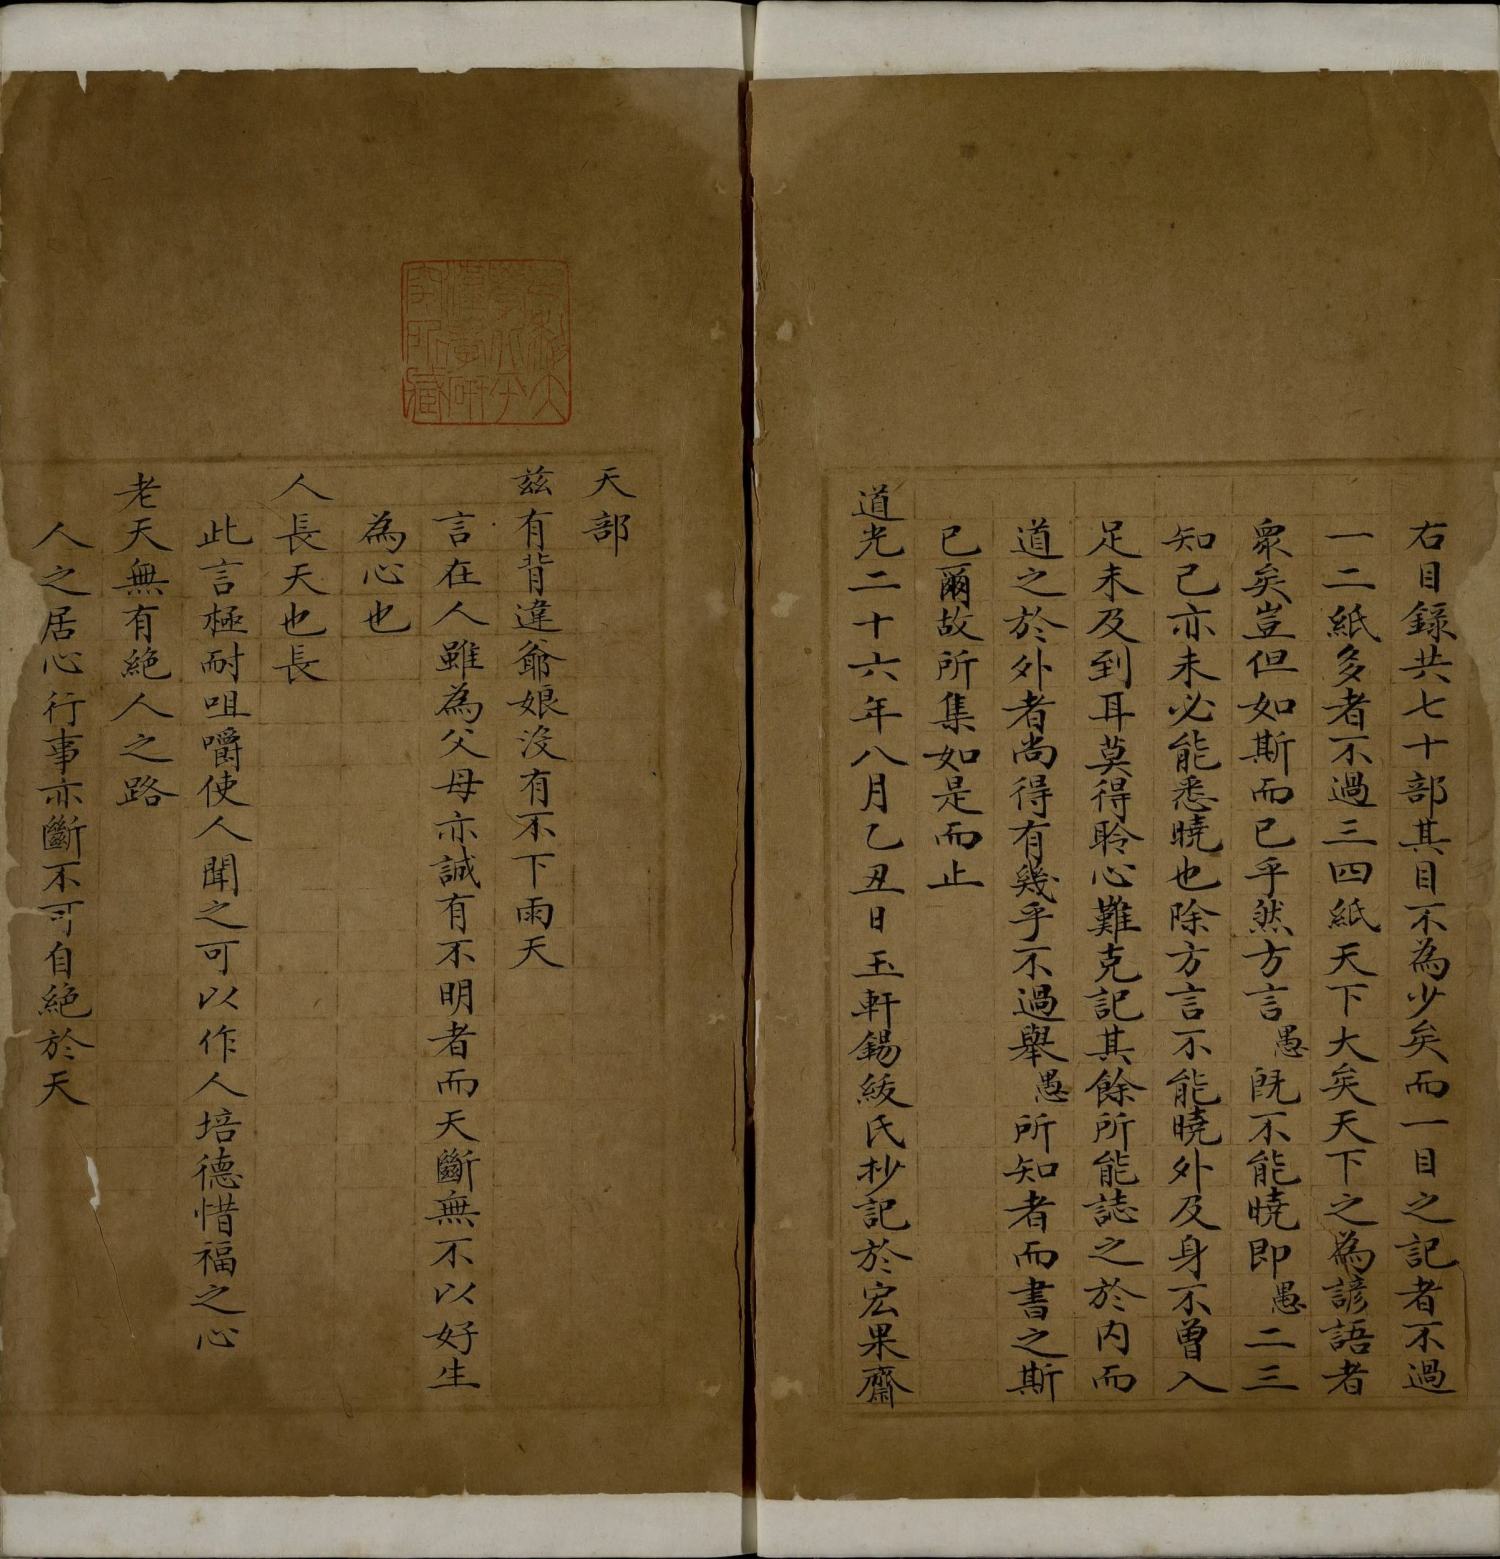 右目錄共七十部其目不為少矣而一目之記者不過
一二紙多者不過三四紙天下大矣天下之為諺語者
衆矣豈但如斯而已乎然方言愚既不能曉即愚二三
知己亦未必能悉曉也除方言不能曉外及身不曾入
足未及到耳莫得聆心難克記其餘所能誌之於内而
道之於外者尚得有幾乎不過舉愚所知者而書之斯
已爾故所集如是而止
道光二十六年八月乙丑日玉軒錫綬氏抄記於宏果齋
天部
兹有背違爺娘没有不下雨天
言在人雖為父母亦誠有不明者而天斷無不以好生
為心也
人長天也長
此言極耐咀嚼使人聞之可以作人培德惜福之心
老天無有絶人之路
人之居心行事亦斷不可自絶於天